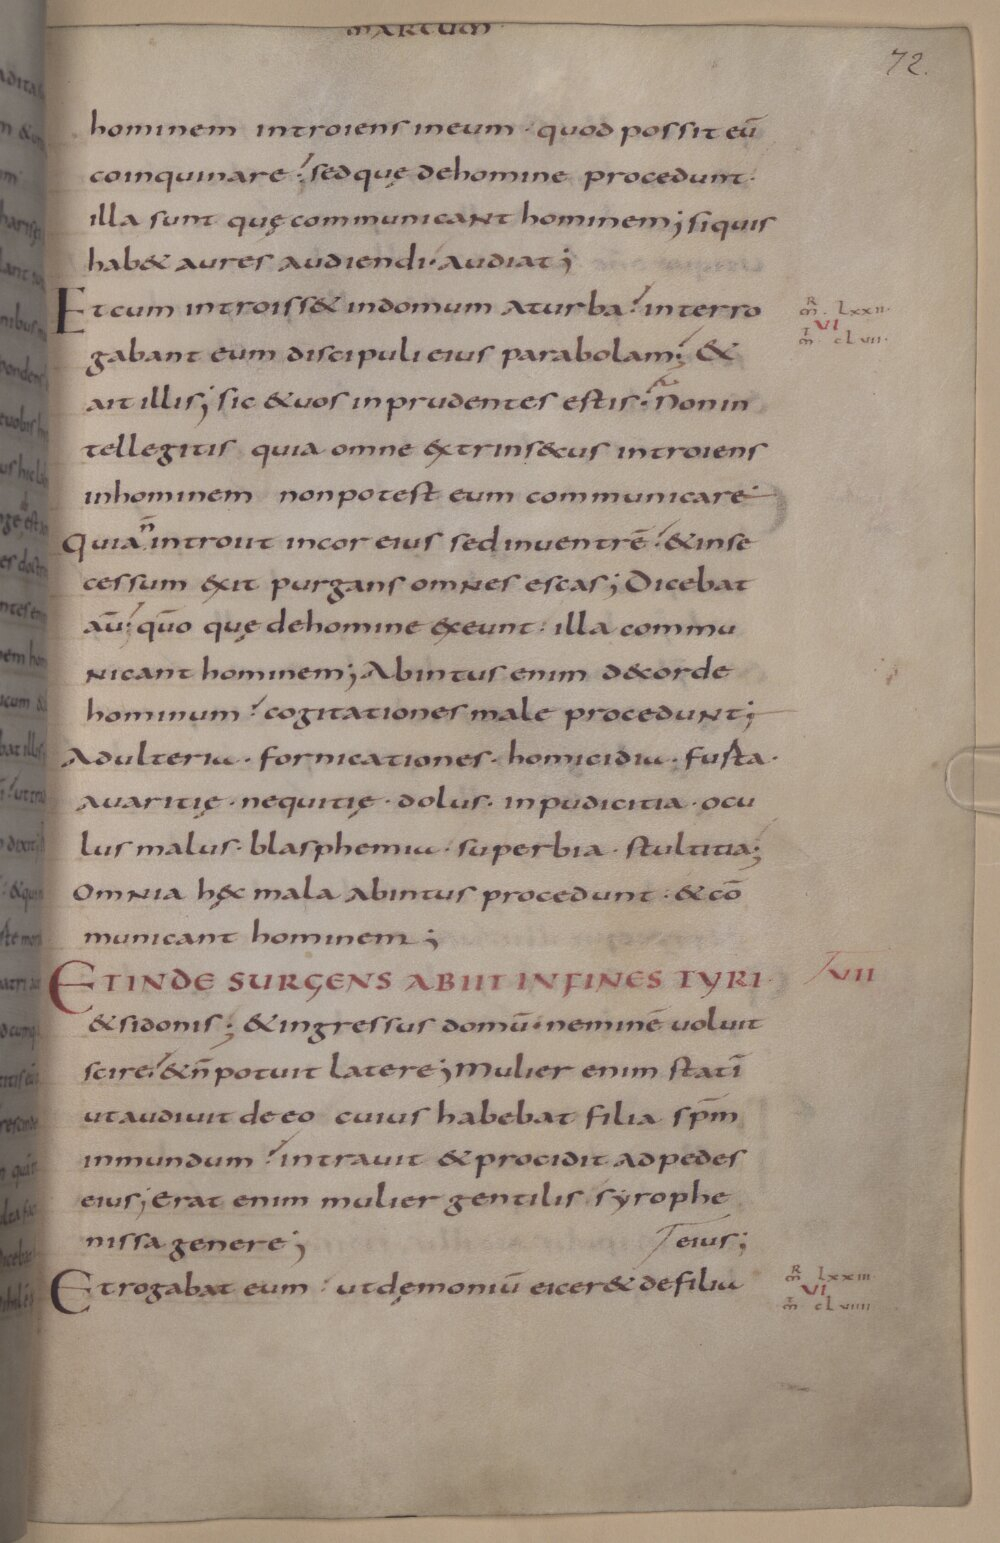 MARCUM
72.
hominem introiens ineum · quod possit eū
coinquinare : sedquę dehomine procedunt ·
illa sunt quę communicant hominem ; siquis
hab& aures audiendi · audiat ;
Etcum introiss& indomum aturba : interro
gabant eum discipuli eius parabolam ; &
ait illis ; sic &uos inprudentes estis · Non in
tellegitis quia omne extrins&cus introiens
inhominem nonpotest eum communicare
Quia n̄ introiit incor eius sed inuentrē : &inse
cessum exit purgans omnes escas ; Dicebat
aū : qūo quę dehomine exeunt · illa commu
nicant hominem ; Abintus enim d&corde
hominum : cogitationes male procedunt ;
Adulteriu · fornicationes · homicidiu · furta ·
auaritię · nequitię · dolus · inpudicitia · ocu
lus malus · blasphemiu · superbia · stultitia ;
Omnia hęc mala abintus procedunt · &cō
municant hominem ;
ETINDE SURGENS ABIIT IN FINES TYRI · VII
&sidonis ; &ingressus domū · neminē uoluit
scire : &n̄ potuit latere ; Mulier enim statī
utaudiuit de eo cuius habebat filia sp̄m
inmundum : intrauit &procidit adpedes
eius ; Erat enim mulier gentilis syrophe
nissa genere ; eius ;
Etrogabat eum : utdęmoniū eicer& defiliu
R m̄ · lxxii ·
VI
T m̄ · clvii ·
R m̄ lxxiii
VI
T m̄ clviiii